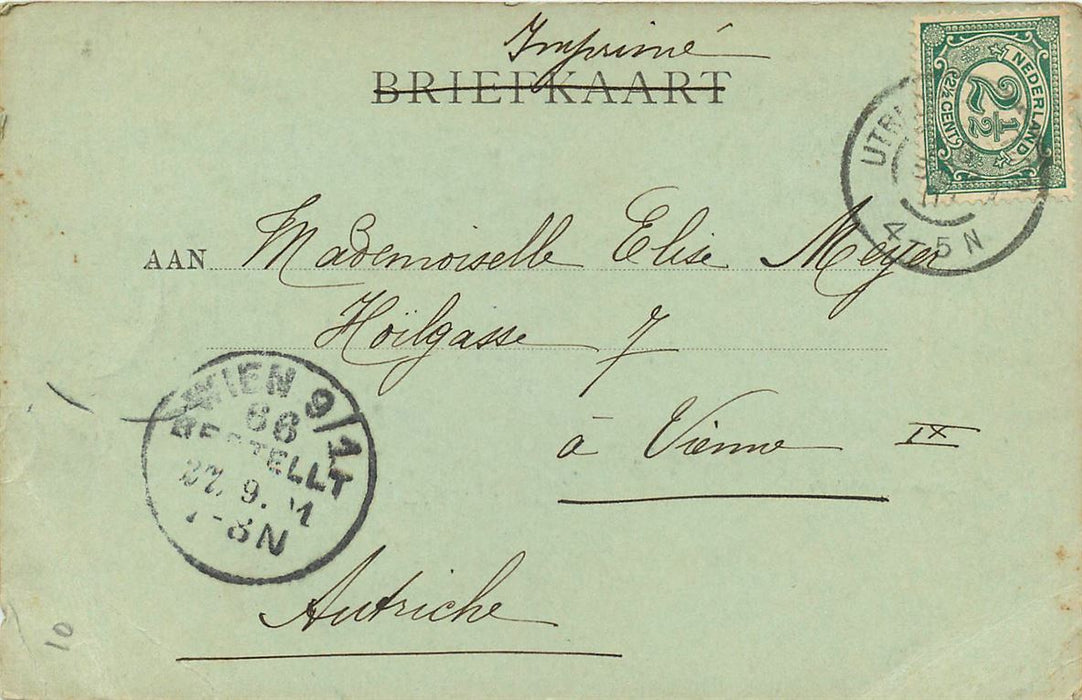 Imprimé
BRIEFKAART
NEDERLAND
2½
2½ CENT
4-5 N
AAN Mademoiselle Elise Meyer
Hoïlgasse 7
à Vienne IX
WIEN 9/1
66
BESTELLT
27. 9.
-8N
Autriche
10